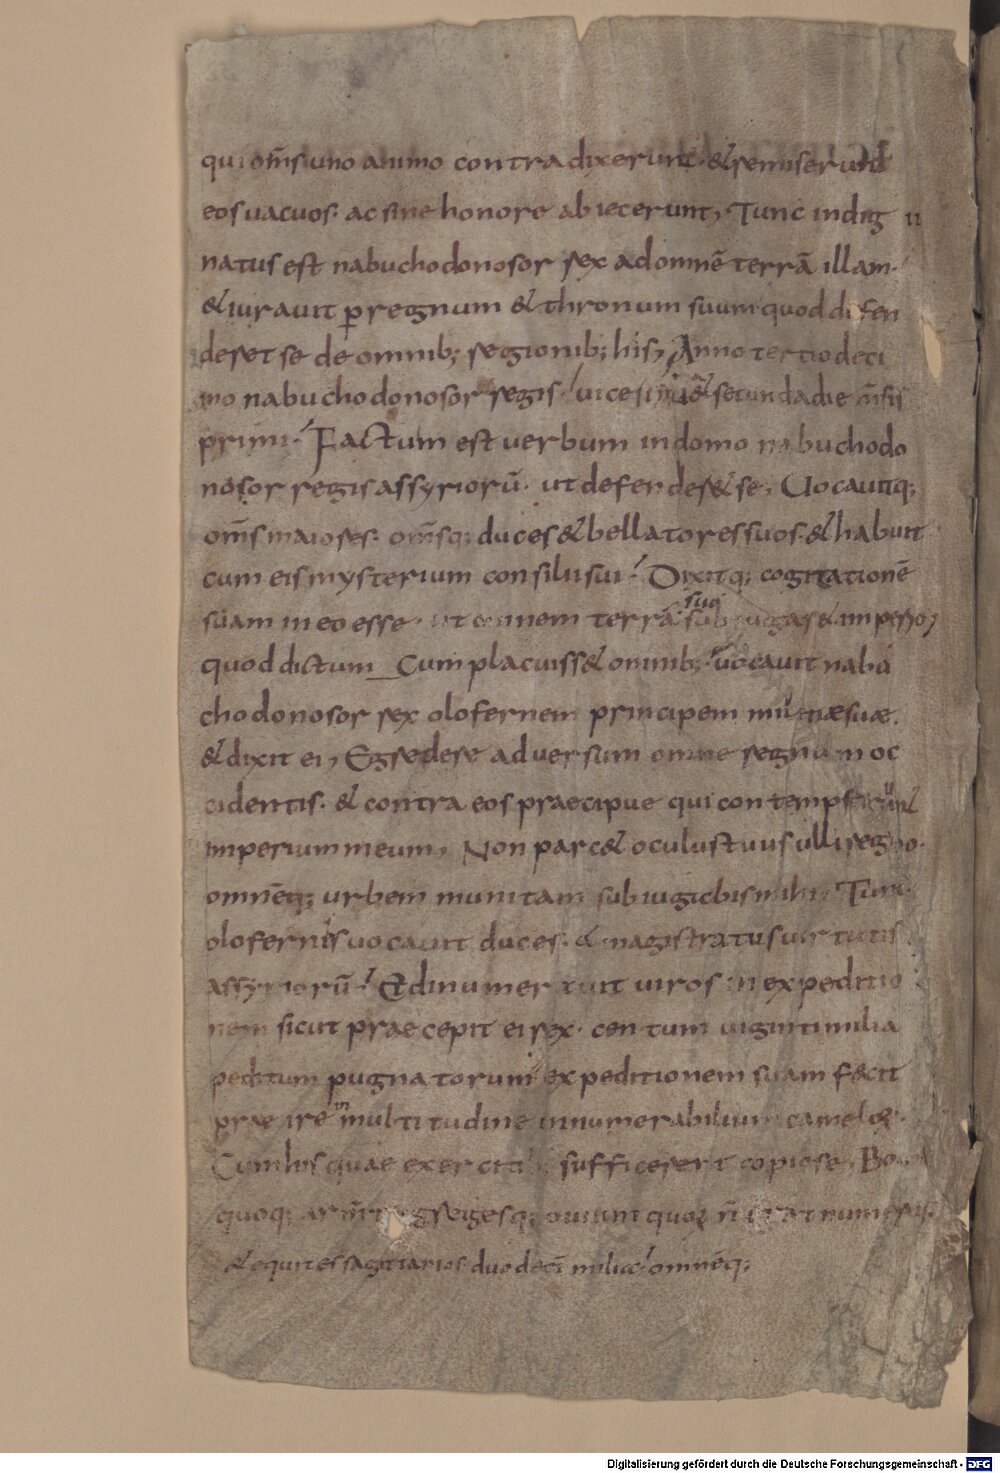 qui om̄s uno animo contradixerunt· & remiserunt
eos vacuos· ac sine honore abiecerunt, Tunc indig
natus est nabuchodonosor rex ad omnē terrā illam·
& iuravit p̱ regnum & thronum suum quod defen
deret se de omnib; regionib; his, Anno tertio deci
mo nabuchodonosor regis· vicesima & secunda die m̄sis
primi· Factum est verbum in domo nabuchodo
nosor regis assyriorū· ut defenderet se, Uocavitq;
om̄s maiores· om̄sq; duces & bellatores suos· & habuit
cum eis mysterium consilii sui· Dixitq; cogitationē
suam in eo esse· ut omnem terrā suo subiugaret imperio,
quod dictum Cum placuiss& omnib; vocavit nabu
chodonosor rex olofernem principem militiæ suæ.
& dixit ei, Egredere adversum omne regnum oc
cidentis· & contra eos praecipue qui contempserunt
imperium meum, Non parc& oculus tuus ulli regno·
omnēq; urbem munitam subiugabis mihi, Tunc
olofernis vocavit duces· & magistratus virtutis
assyriorū· Et dinumeravit viros in expeditio
nem sicut praecepit ei rex· centum viginti milia
peditum pugnatorum expeditionem suam fecit
praeire multitudine innumerabilium camelorꝝ·
Cum his quae exerciti sufficerent copiose, Bo
quoq; arm̄t gregesq; ovium quoꝝ n̄ erat numerus·
& equites sagittarios duodecī milia· omnēq;
Digitalisierung gefördert durch die Deutsche Forschungsgemeinschaft - DFG